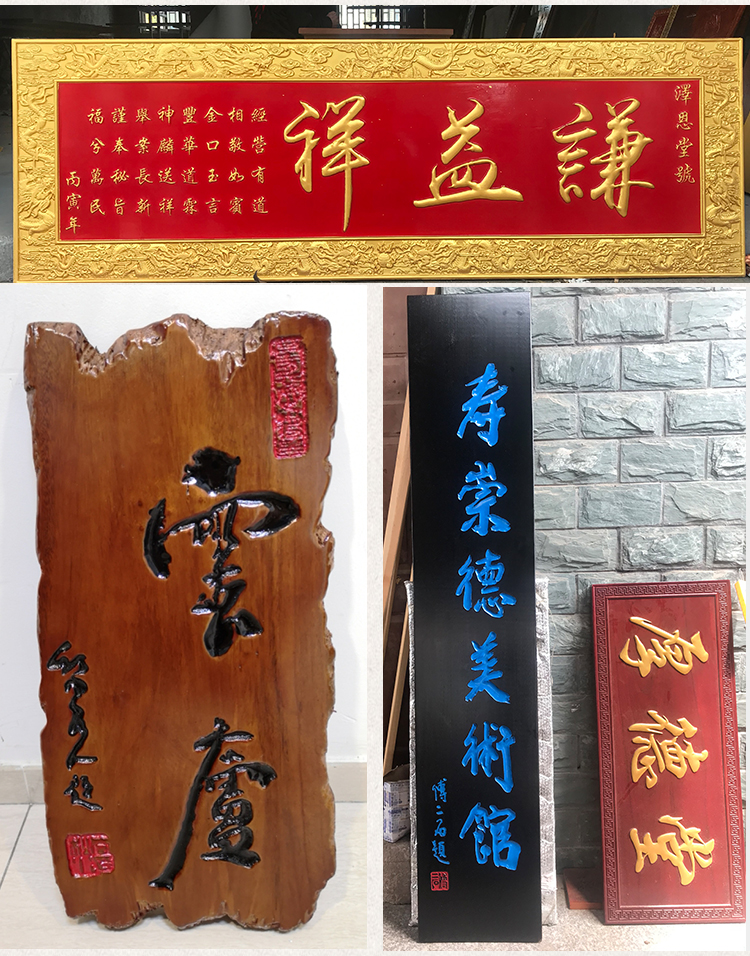 澤恩堂號
謙益祥
經營有道
相敬如賓
金口玉言
豐華道霖
神麟送祥
舉案長新
謹奉秘旨
福兮萬民
丙寅年
雲廬
題
寿崇德美術館
傅二石題
厚德堂